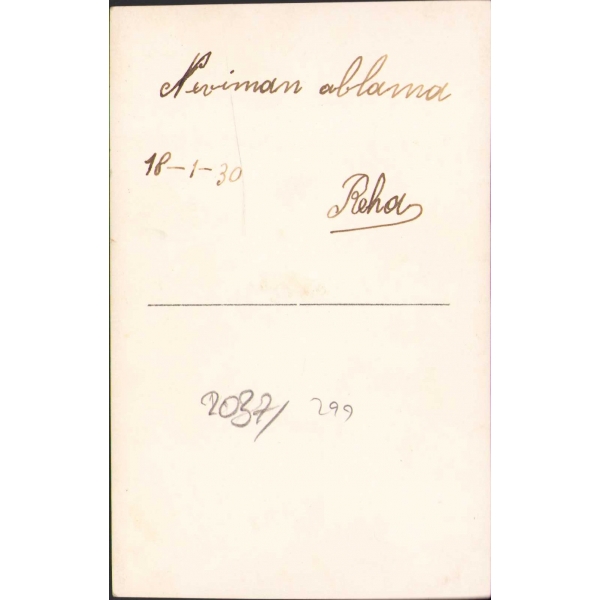 Neviman ablama
18-1-30
Reha
2037/ 299